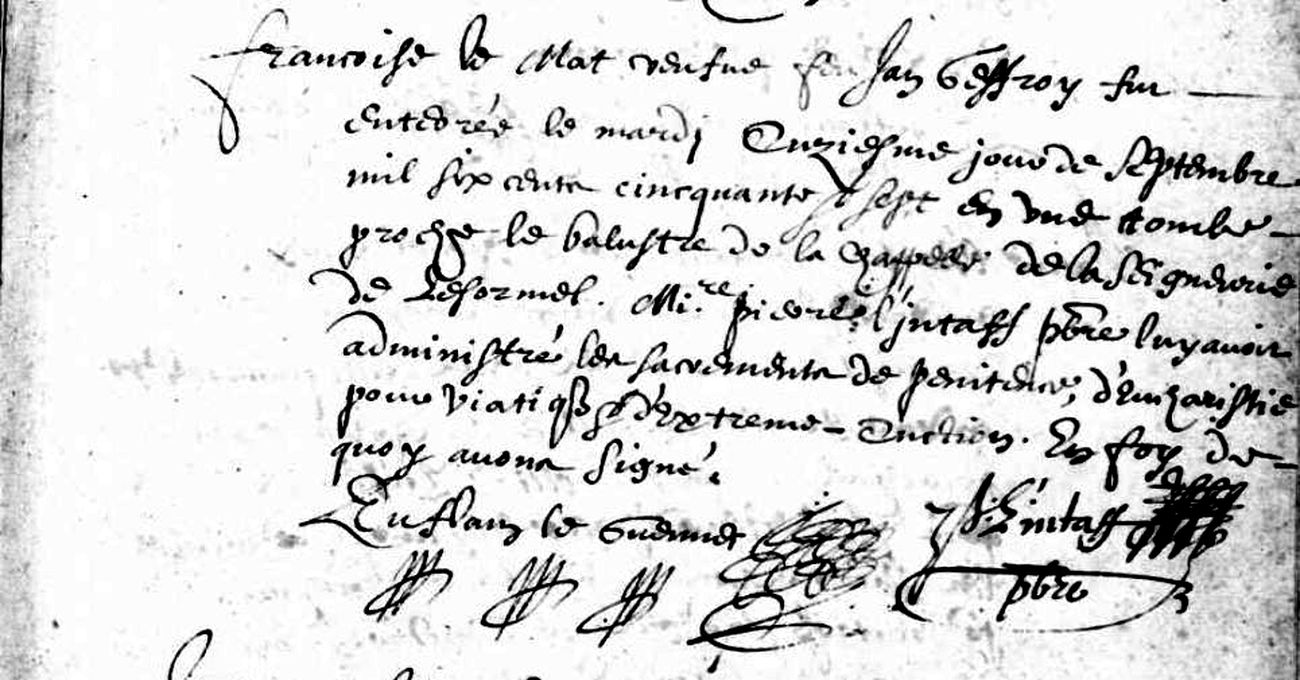 francoise le Mat veufue feu Jan Geffroy fut
enterée le mardj Onziesme jour de Septembre
mil six cents cincquante & sept en vne tombe
proche le balustre de la chappelle de la Seigneurie
de Lesormel. Mi.re pierre l'jntaff pbre luy auoit
administré les sacrements de penitence, d'Eucharistie
pour Viatiq & d'Extreme-Onction. En foy de
quoy auons signé.
Enflam le Guennec P. L'intaff
pbre